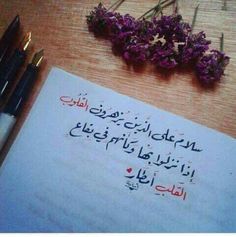 سلام على الذين يزهرون القلوب
إذا نزلوا بها وكأنهم في بقاع
القلب أمطار